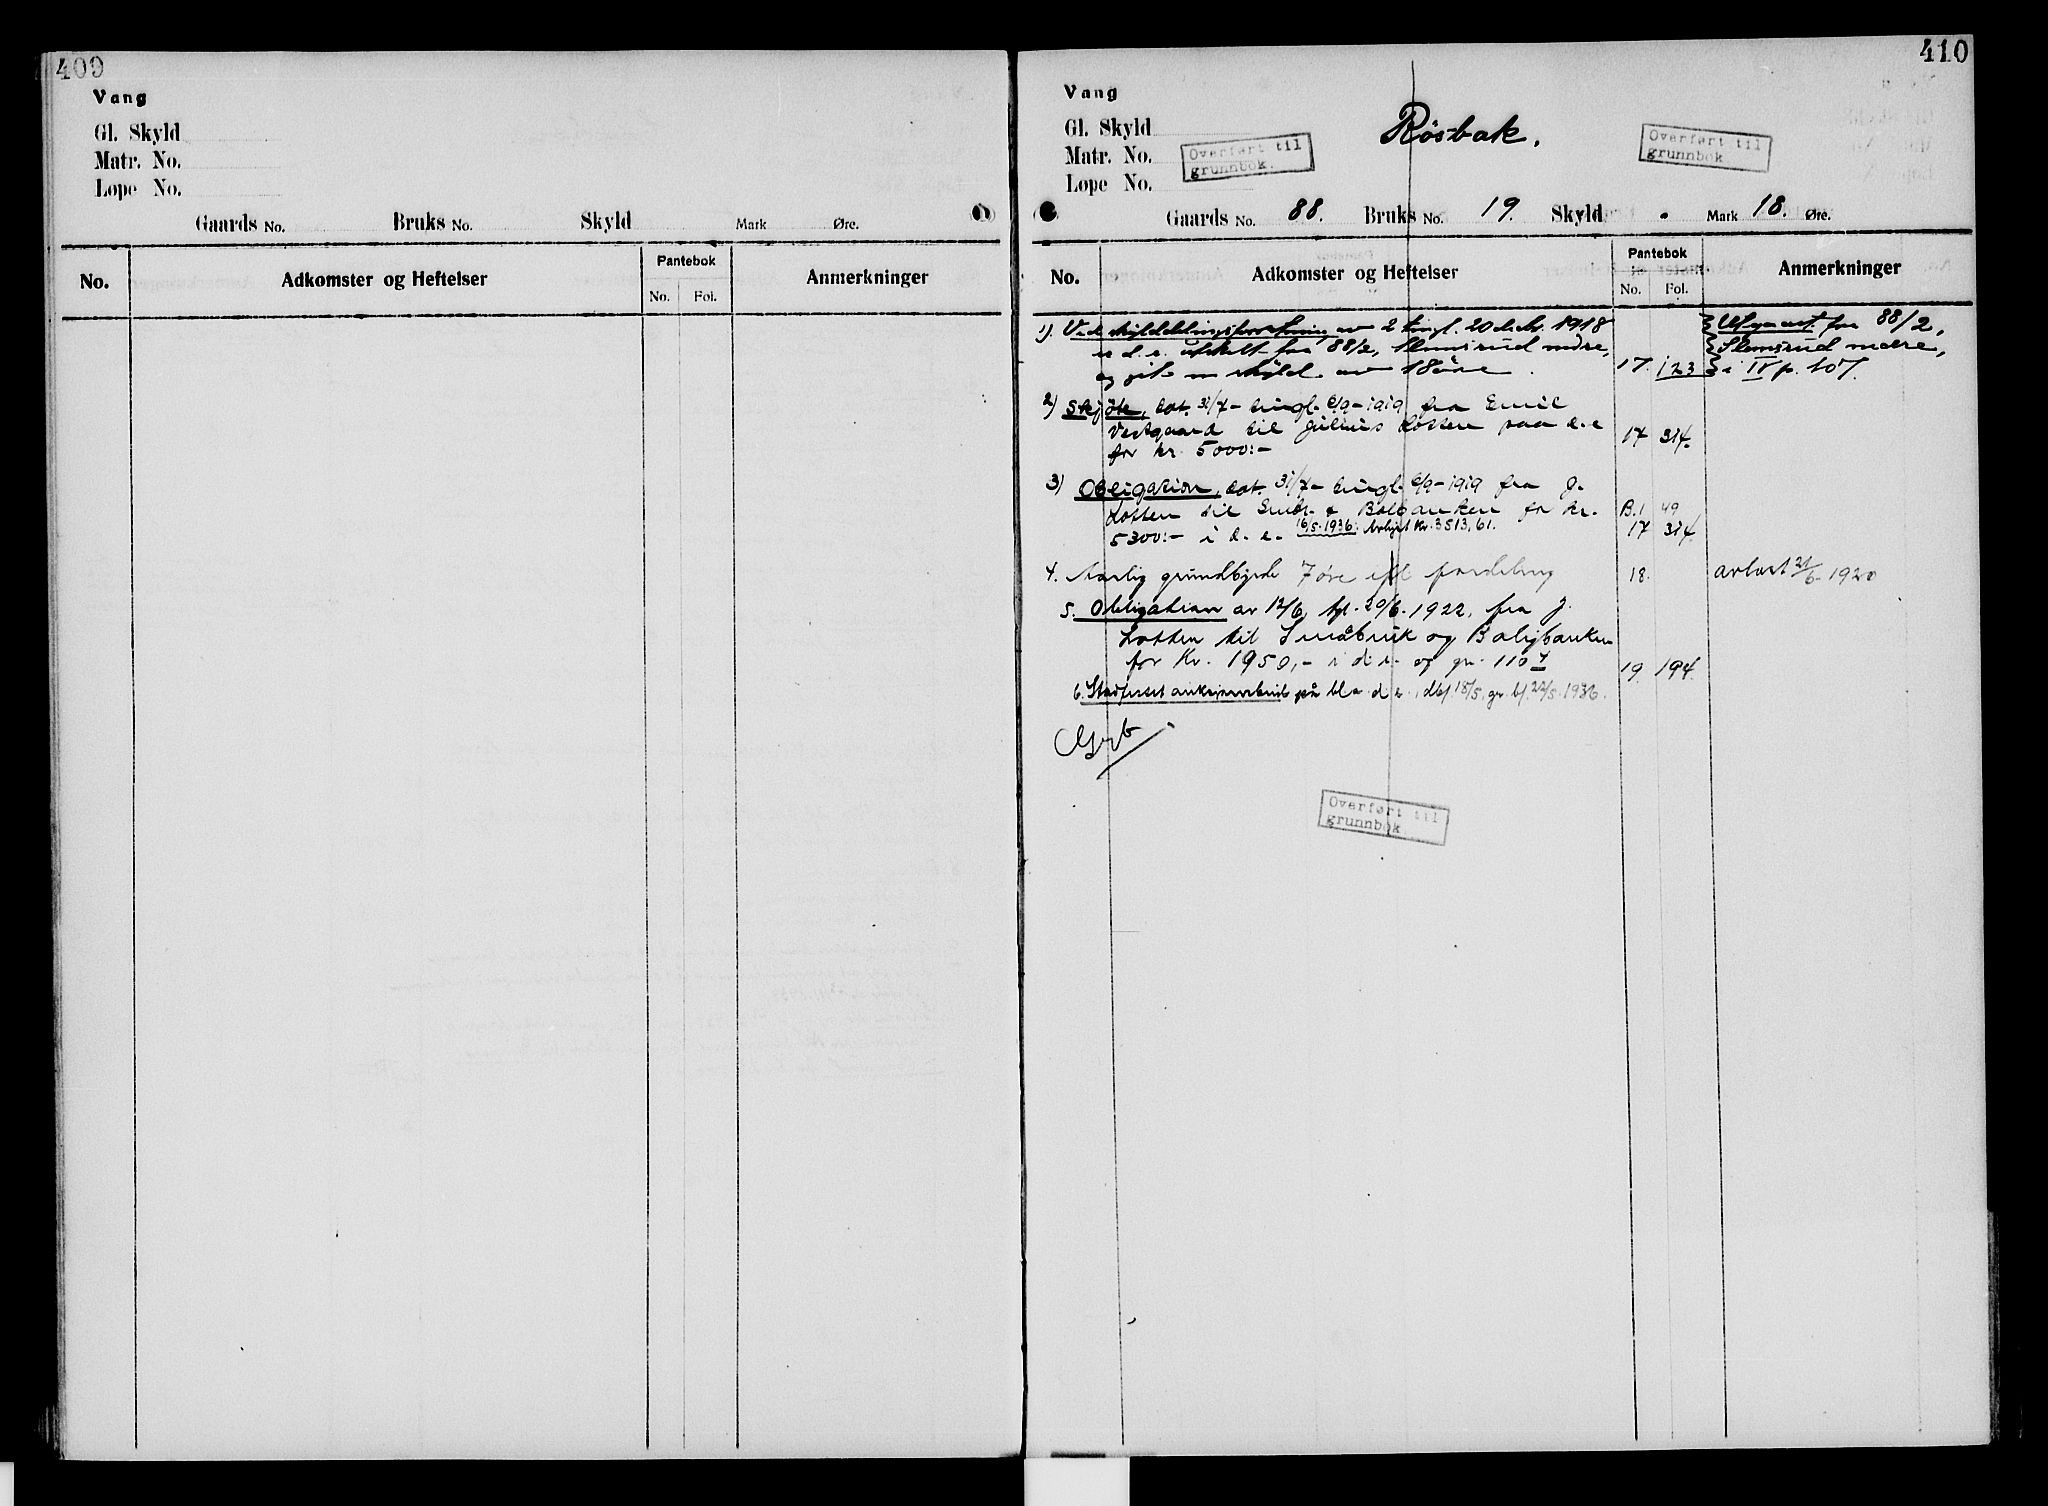 409
Vang
Gl. Skyld
Matr. No.
Lope No.
Gaards No. Bruks No. Skyld Mark Øre.
No. Adkomster og Heftelser Pantebok Anmerkninger
No. Fol.
410
Vang
Gl. Skyld
Matr. No.
Lope No.
Røsbak.
Overført til
grunnbok.
Overført til
grunnbok
Gaards No. 88. Bruks No. 19. Skyld Mark 18. Øre.
No. Adkomster og Heftelser Pantebok Anmerkninger
No. Fol.
1). Ved skylddelingsforretning av 2 tingl. 20 decbr. 1918
er d. e. utskilt fra 88/2, Slemsrud nedre,
og git en skyld av 18 øre. 17. 123
Utgaaet fra 88/2,
Slemsrud nedre,
i IV p. 107.
2) Skjøte, dat. 31/7 - tingl. 6/9 - 1919 fra Emil
Vestgaard til Julius Lotten paa d. e
for kr. 5000:- 17 314.
3) Obligation, dat. 31/7 - tingl. 6/9 - 1919 fra J.
Lotten til Småbr. & Boligbanken for kr. B.1 49
5300:- i d. e. 16/5. 1936: Avlyst kr. 3513,61. 17 314.
4. Aarlig grundbyrde 7 øre efter fordeling 18. avløst 21/6 - 1920
5. Obligation av 12/6, tgl. 20/6. 1922, fra J.
Lotten til Småbruk og Boligbanken
for Kr. 1950,- i d. e. og gn. 110 19. 194.
6. Stadfestet auksjonsbud på bl.a. d. e., 18/5, 22/5. 1936.
Overført til
grunnbok